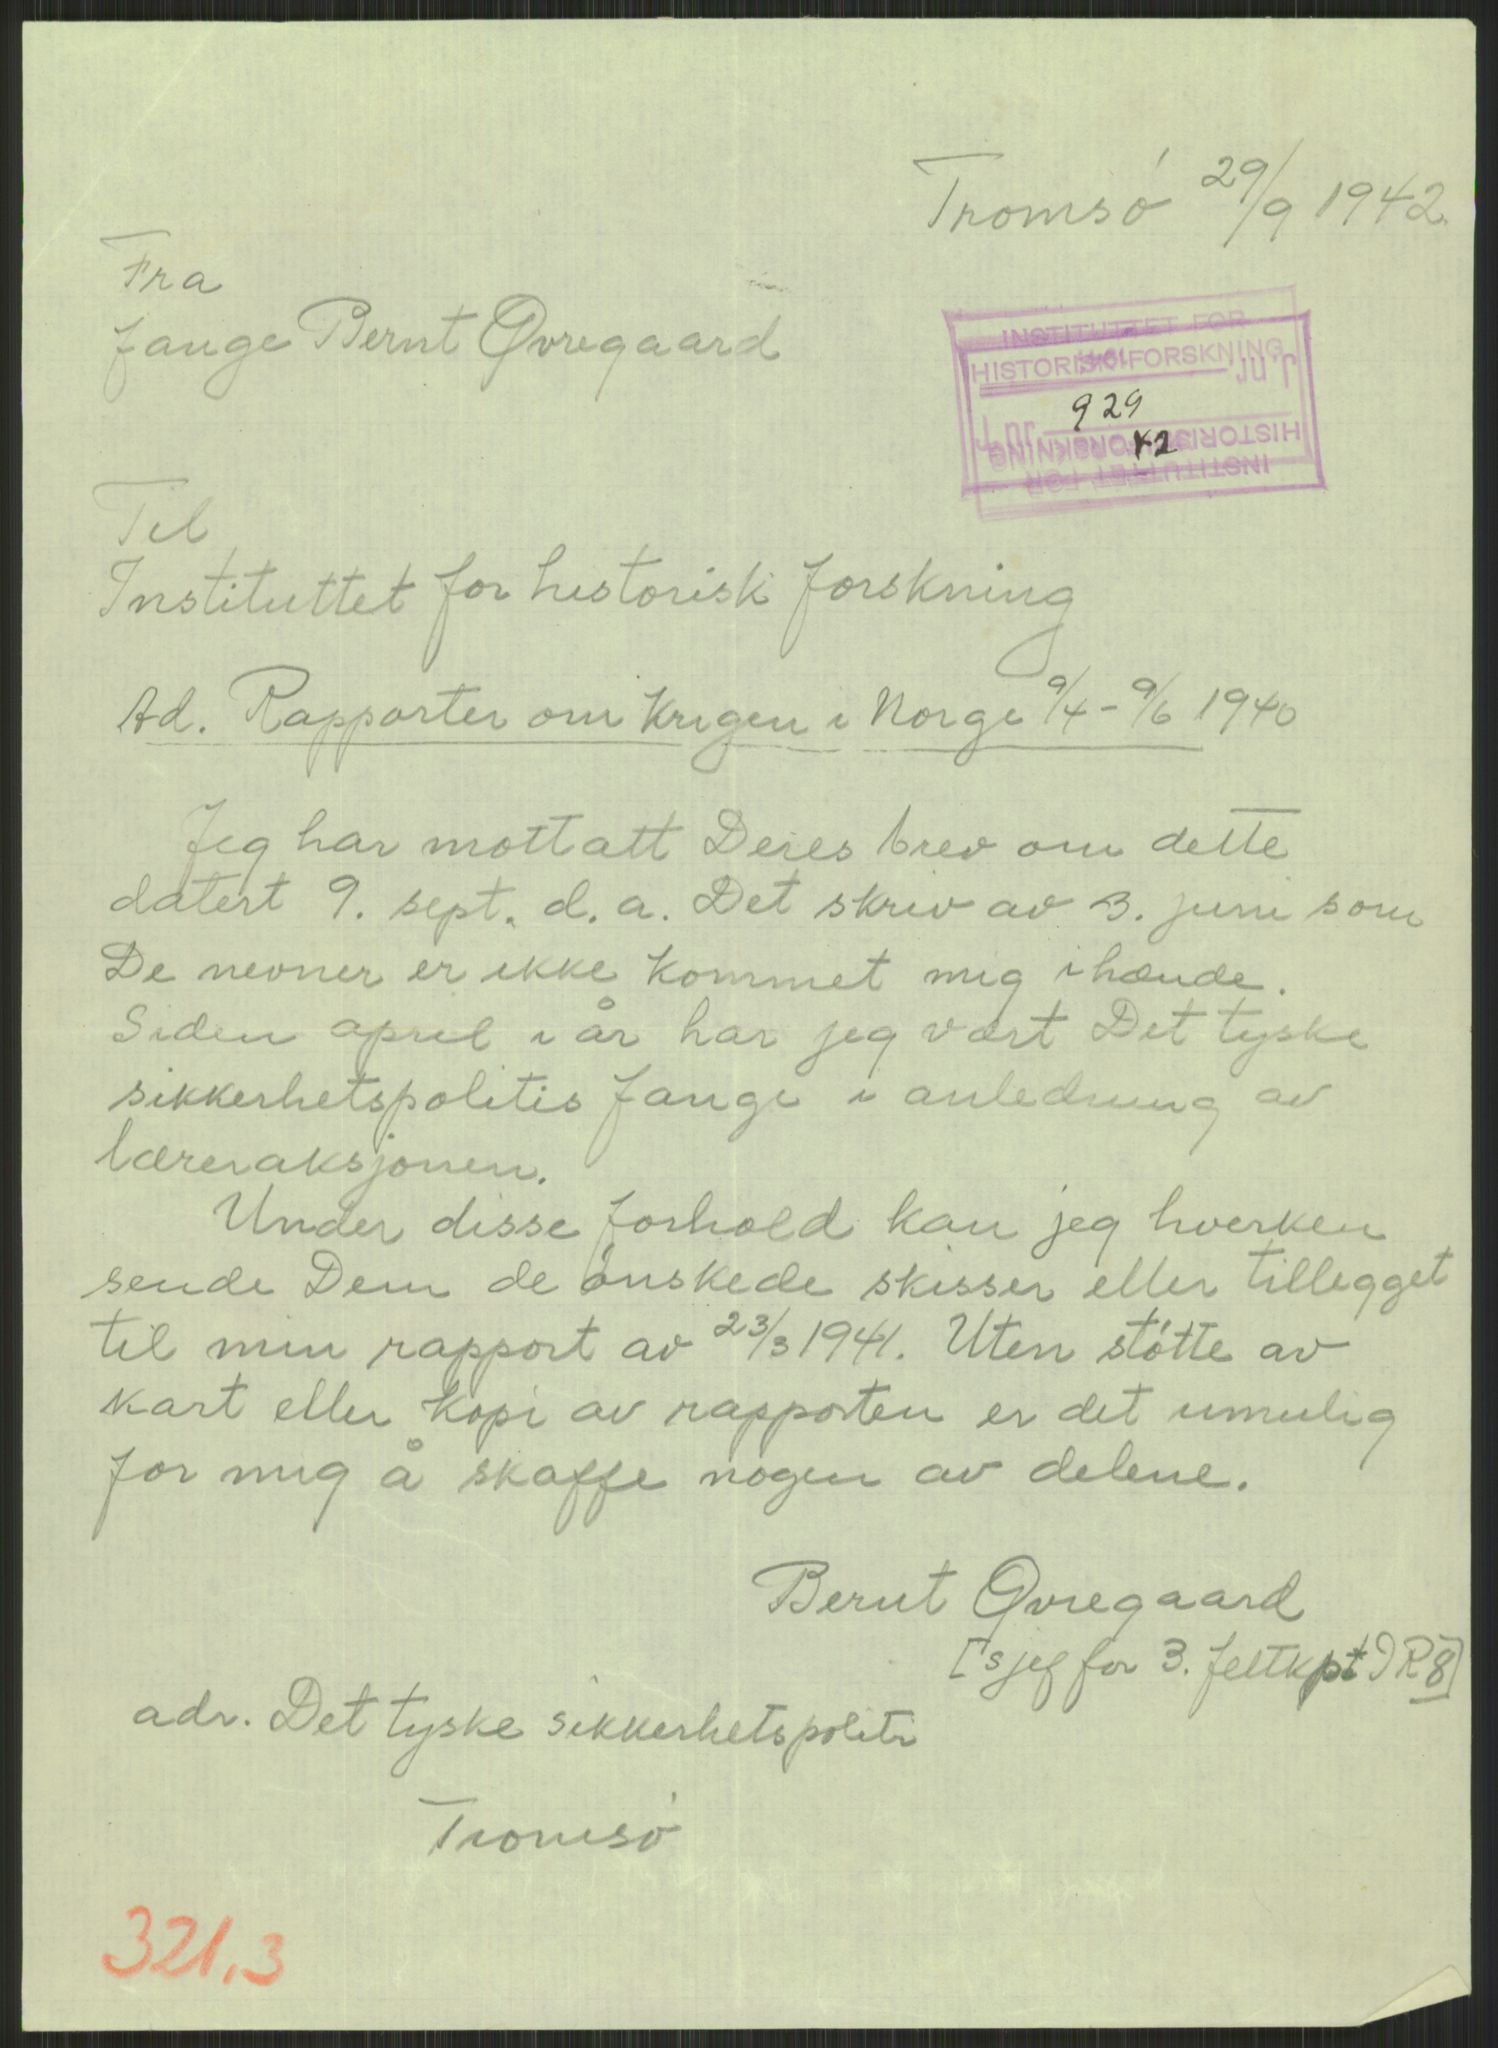 Tromsö 29/9 1942.
Fra
fange Bernt Øvregaard
INSTITUTTET FOR
HISTORISK FORSKNING
J.nr
929
42
Til
Instituttet for historisk forskning
Ad. Rapporter om krigen i Norge 9/4 - 9/6 1940
Jeg har mottatt Deres brev om dette
datert 9. sept. d. a. Det skriv av 3. juni som
De nevner er ikke kommet mig ihænde.
Siden april i år har jeg vært Det tyske
sikkerhetspolitis fange i anledning av
læreraksjonen.
Under disse forhold kan jeg hverken
sende Dem de önskede skisser eller tillegget
til min rapport av 23/3 1941. Uten stötte av
kart eller kopi av rapporten er det umulig
for mig å skaffe nogen av delene.
Bernt Øvregaard
[sjef for 3. feltkp* IR8]
adr. Det tyske sikkerhetspoliti
Tromsö
321.3